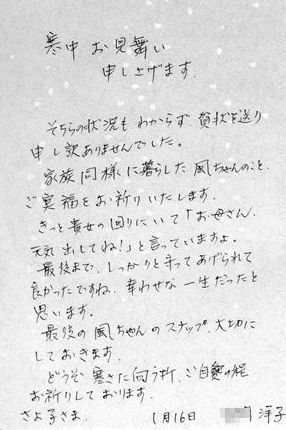 寒中 お見舞い
申しあげます.
そちらの状況も わからず 賀状を送り
申し訳ありませんでした。
家族同様に暮らした 風ちゃんのこと、
ご冥福をお祈りいたします.
きっと貴女の回りにいて「お母さん.
元気出してね!」と言っていますよ。
最後まで、しっかりと守ってあげられて
良かったですね. 幸わせな一生だったと
思います。
最後の 風ちゃんの スナップ 大切に
しておきます.
どうぞ 寒さに向う折、ご自愛の程
お祈りしております.
さよ子さま. 1月16日 洋子